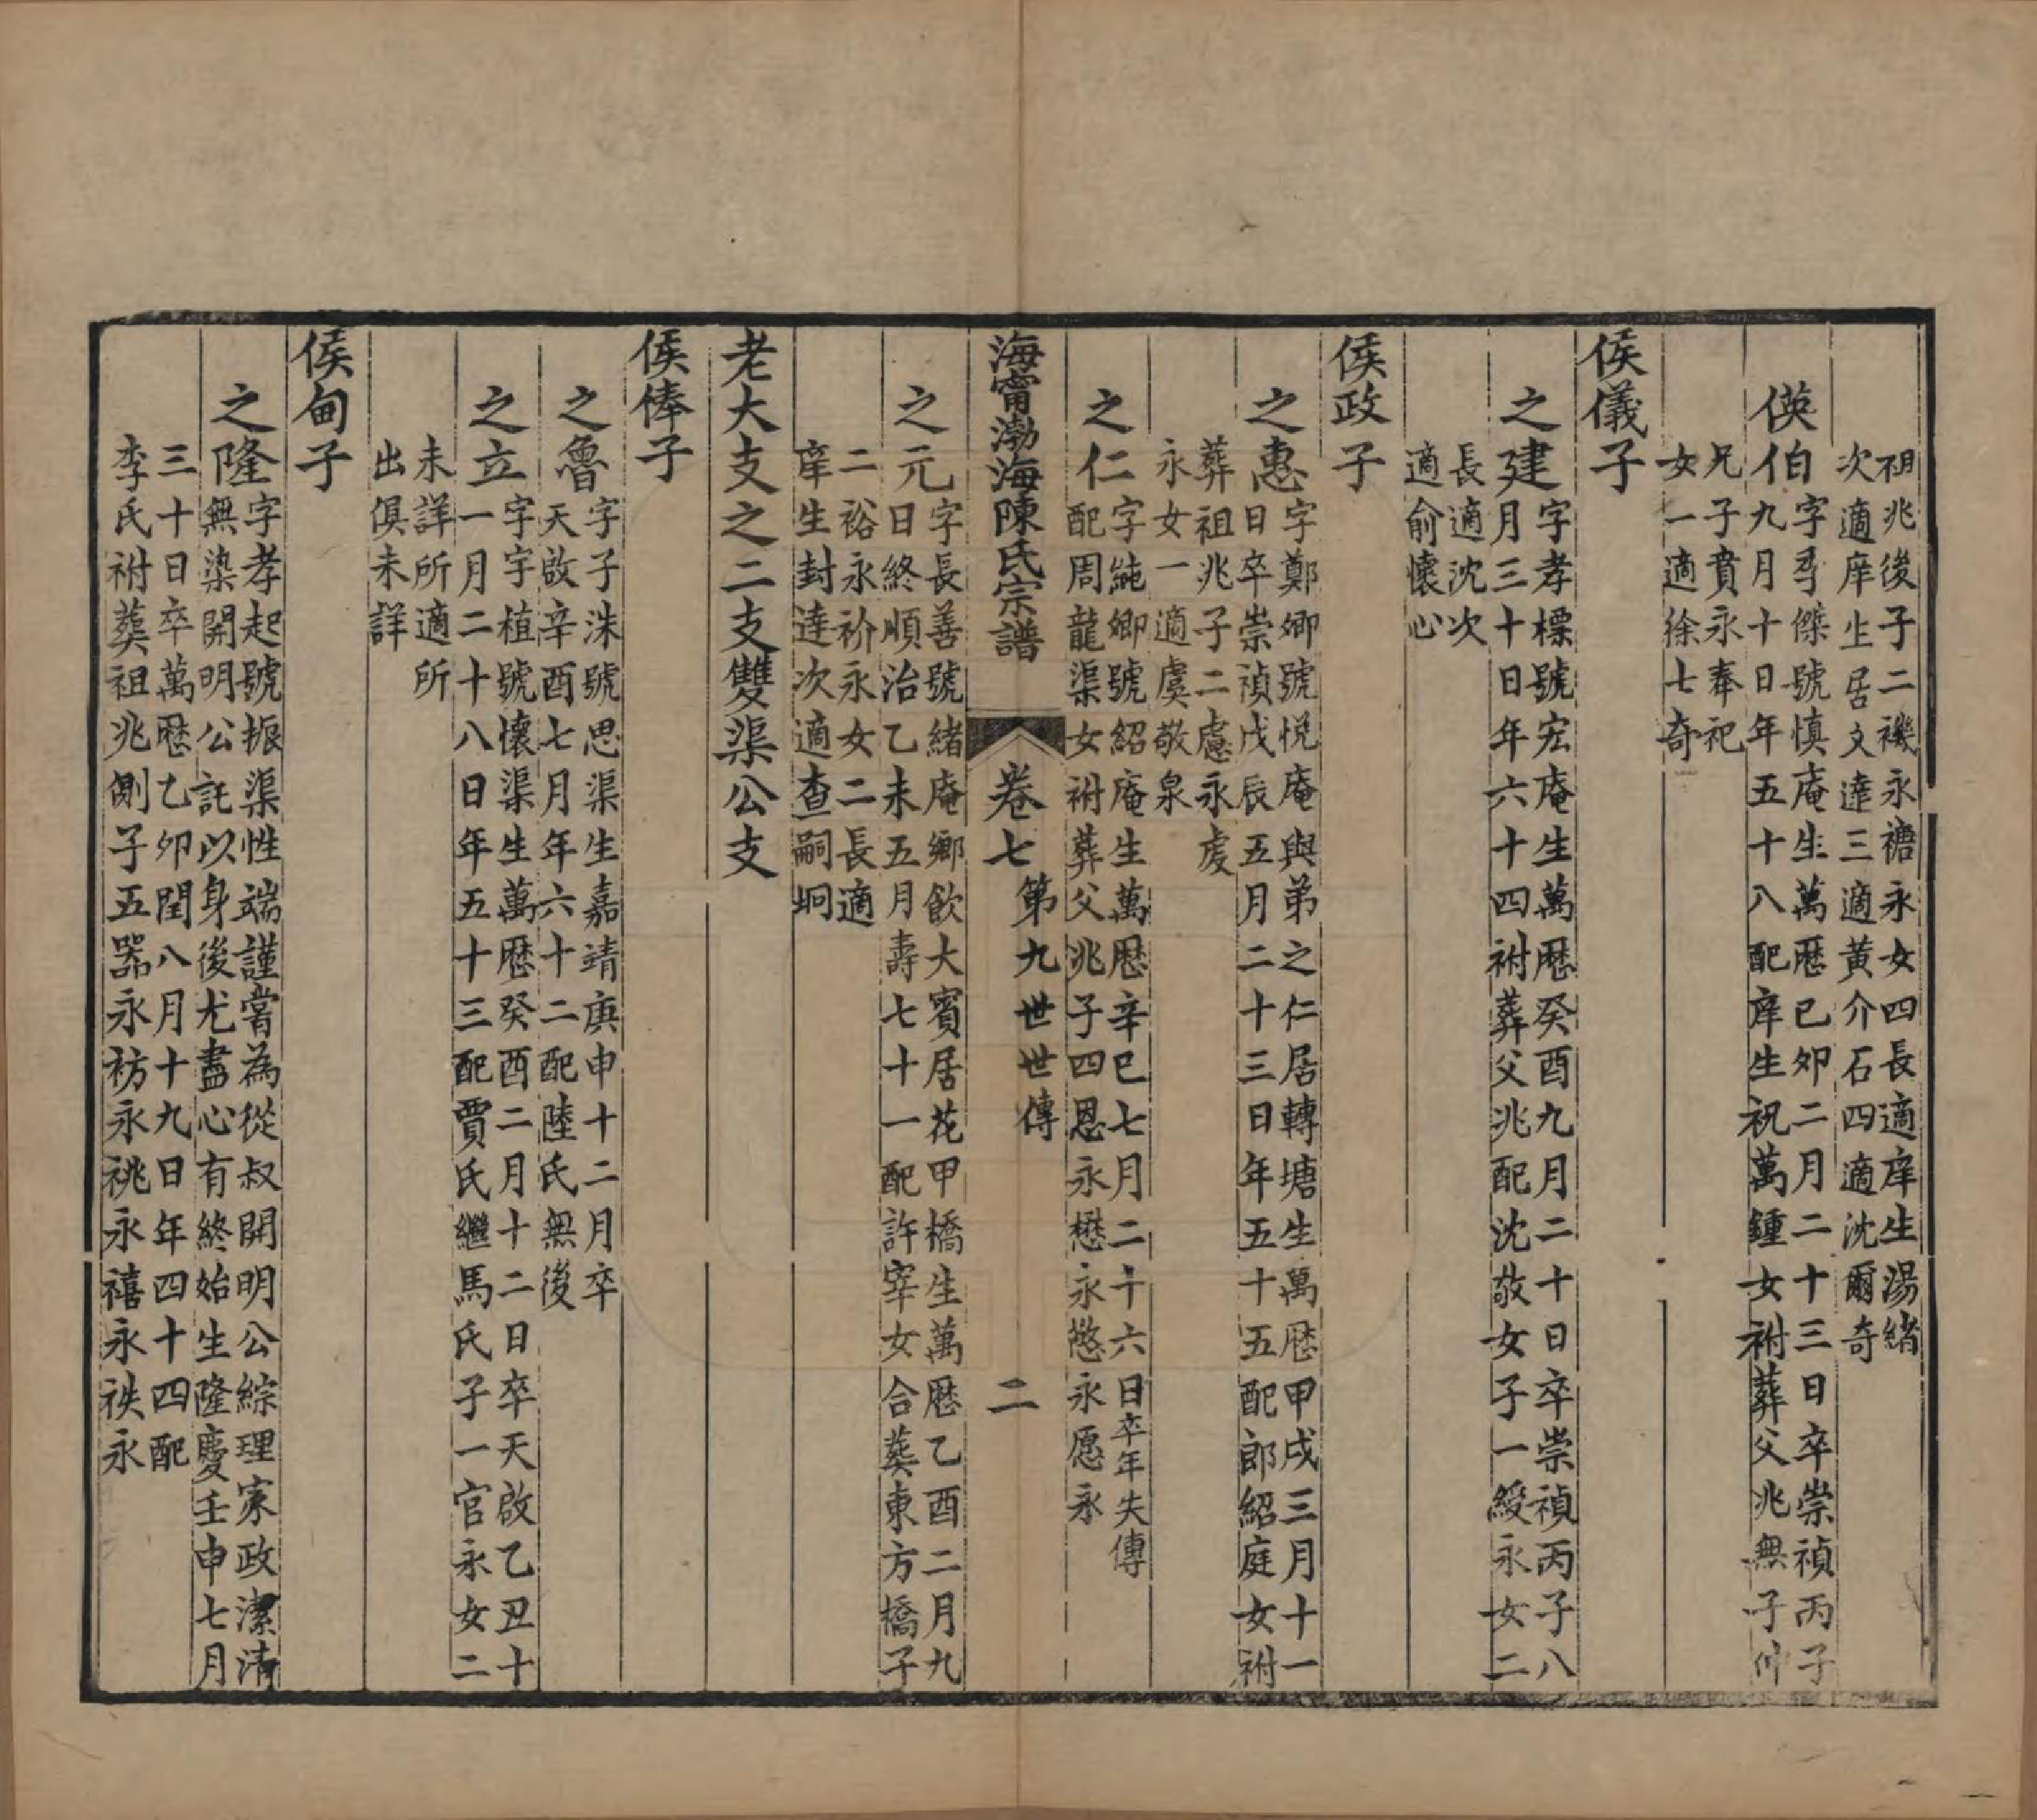 祖兆後子二禨永禟永女四長適庠生湯緒
次適庠生居文達三適黃介石四適沈爾奇
偀伯
字寽傑號慎庵生萬厯己夘二月二十三日卒崇禎丙子
九月十日年五十八配庠生祝萬鍾女祔葬父兆無子以仲
兄子賁永奉祀
女一適徐七奇
侯儀子
之建
字孝標號宏庵生萬厯癸酉九月二十日卒崇禎丙子八
月三十日年六十四祔葬父兆配沈敬女子一綬永女二
長適沈次
適俞懷心
侯政子
之惠
字鄭卿號悅庵與弟之仁居轉塘生萬厯甲戌三月十一
日卒崇禎戊辰五月二十三日年五十五配郎紹庭女祔
葬祖兆子二慮永䖏
永女一適虞敬泉
之仁
字純卿號紹庵生萬厯辛巳七月二十六日卒年失傳
配周龍渠女祔葬父兆子四恩永懋永慜永愿永
海甯渤海陳氏宗譜 卷七 第九世世傳 二
之元
字長善號緒庵鄉飲大賓居花甲橋生萬厯乙酉二月九
日終順治乙未五月壽七十一配許宰女合葬東方橋子
二裕永衸永女二長適
庠生封達次適查嗣坰
老大支之二支雙渠公支
侯俸子
之魯
字子洙號思渠生嘉靖庚申十二月卒
天啟辛酉七月年六十二配陸氏無後
之立
字字植號懷渠生萬厯癸酉二月十二日卒天啟乙丑十
一月二十八日年五十三配賈氏繼馬氏子一官永女二
未詳所適所
出俱未詳
侯甸子
之隆
字孝起號振渠性端謹嘗為從叔開明公綜理家政潔清
無染開明公託以身後尤盡心有終始生隆慶壬申七月
三十日卒萬厯乙卯閏八月十九日年四十四配
李氏祔葬祖兆側子五噐永祊永祧永禧永祑永